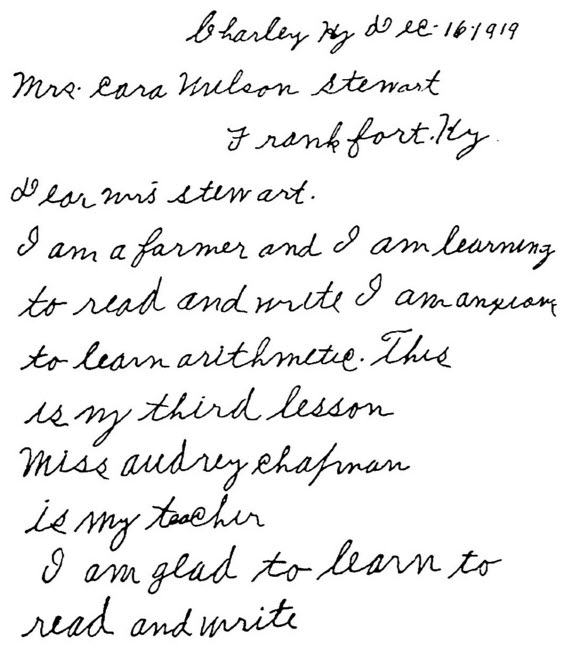 Charley Ky Dec-16-1919
Mrs. Cora Wilson Stewart
Frankfort. Ky.
Dear mrs stewart.
I am a farmer and I am learning
to read and write I am anxious
to learn arithmetic. This
is my third lesson
Miss audrey chapman
is my teacher
I am glad to learn to
read and write